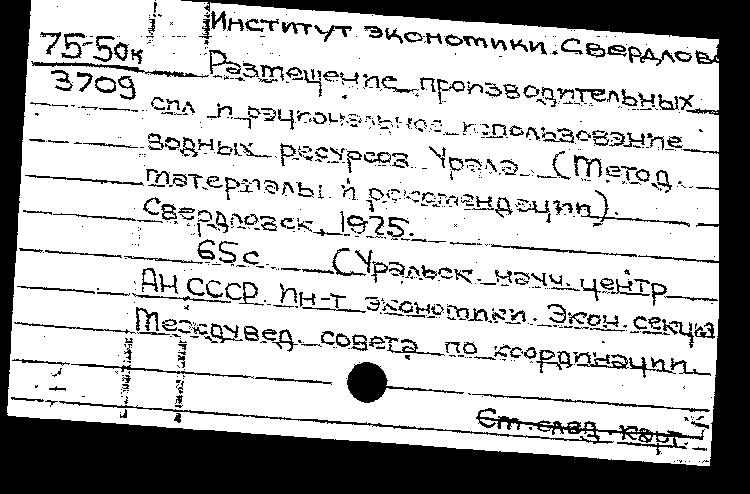 Институт экономики. Свердловс
75-50к
3709
Размещение производительных
сил и рациональное использование
водных ресурсов Урала (Метод.
материалы и рекомендации).
Свердловск, 1975.
65с (Уральск. науч. центр
АН СССР. Ин-т экономики. Экон. секция
Междувед. совета по координации.
См. след. карт.